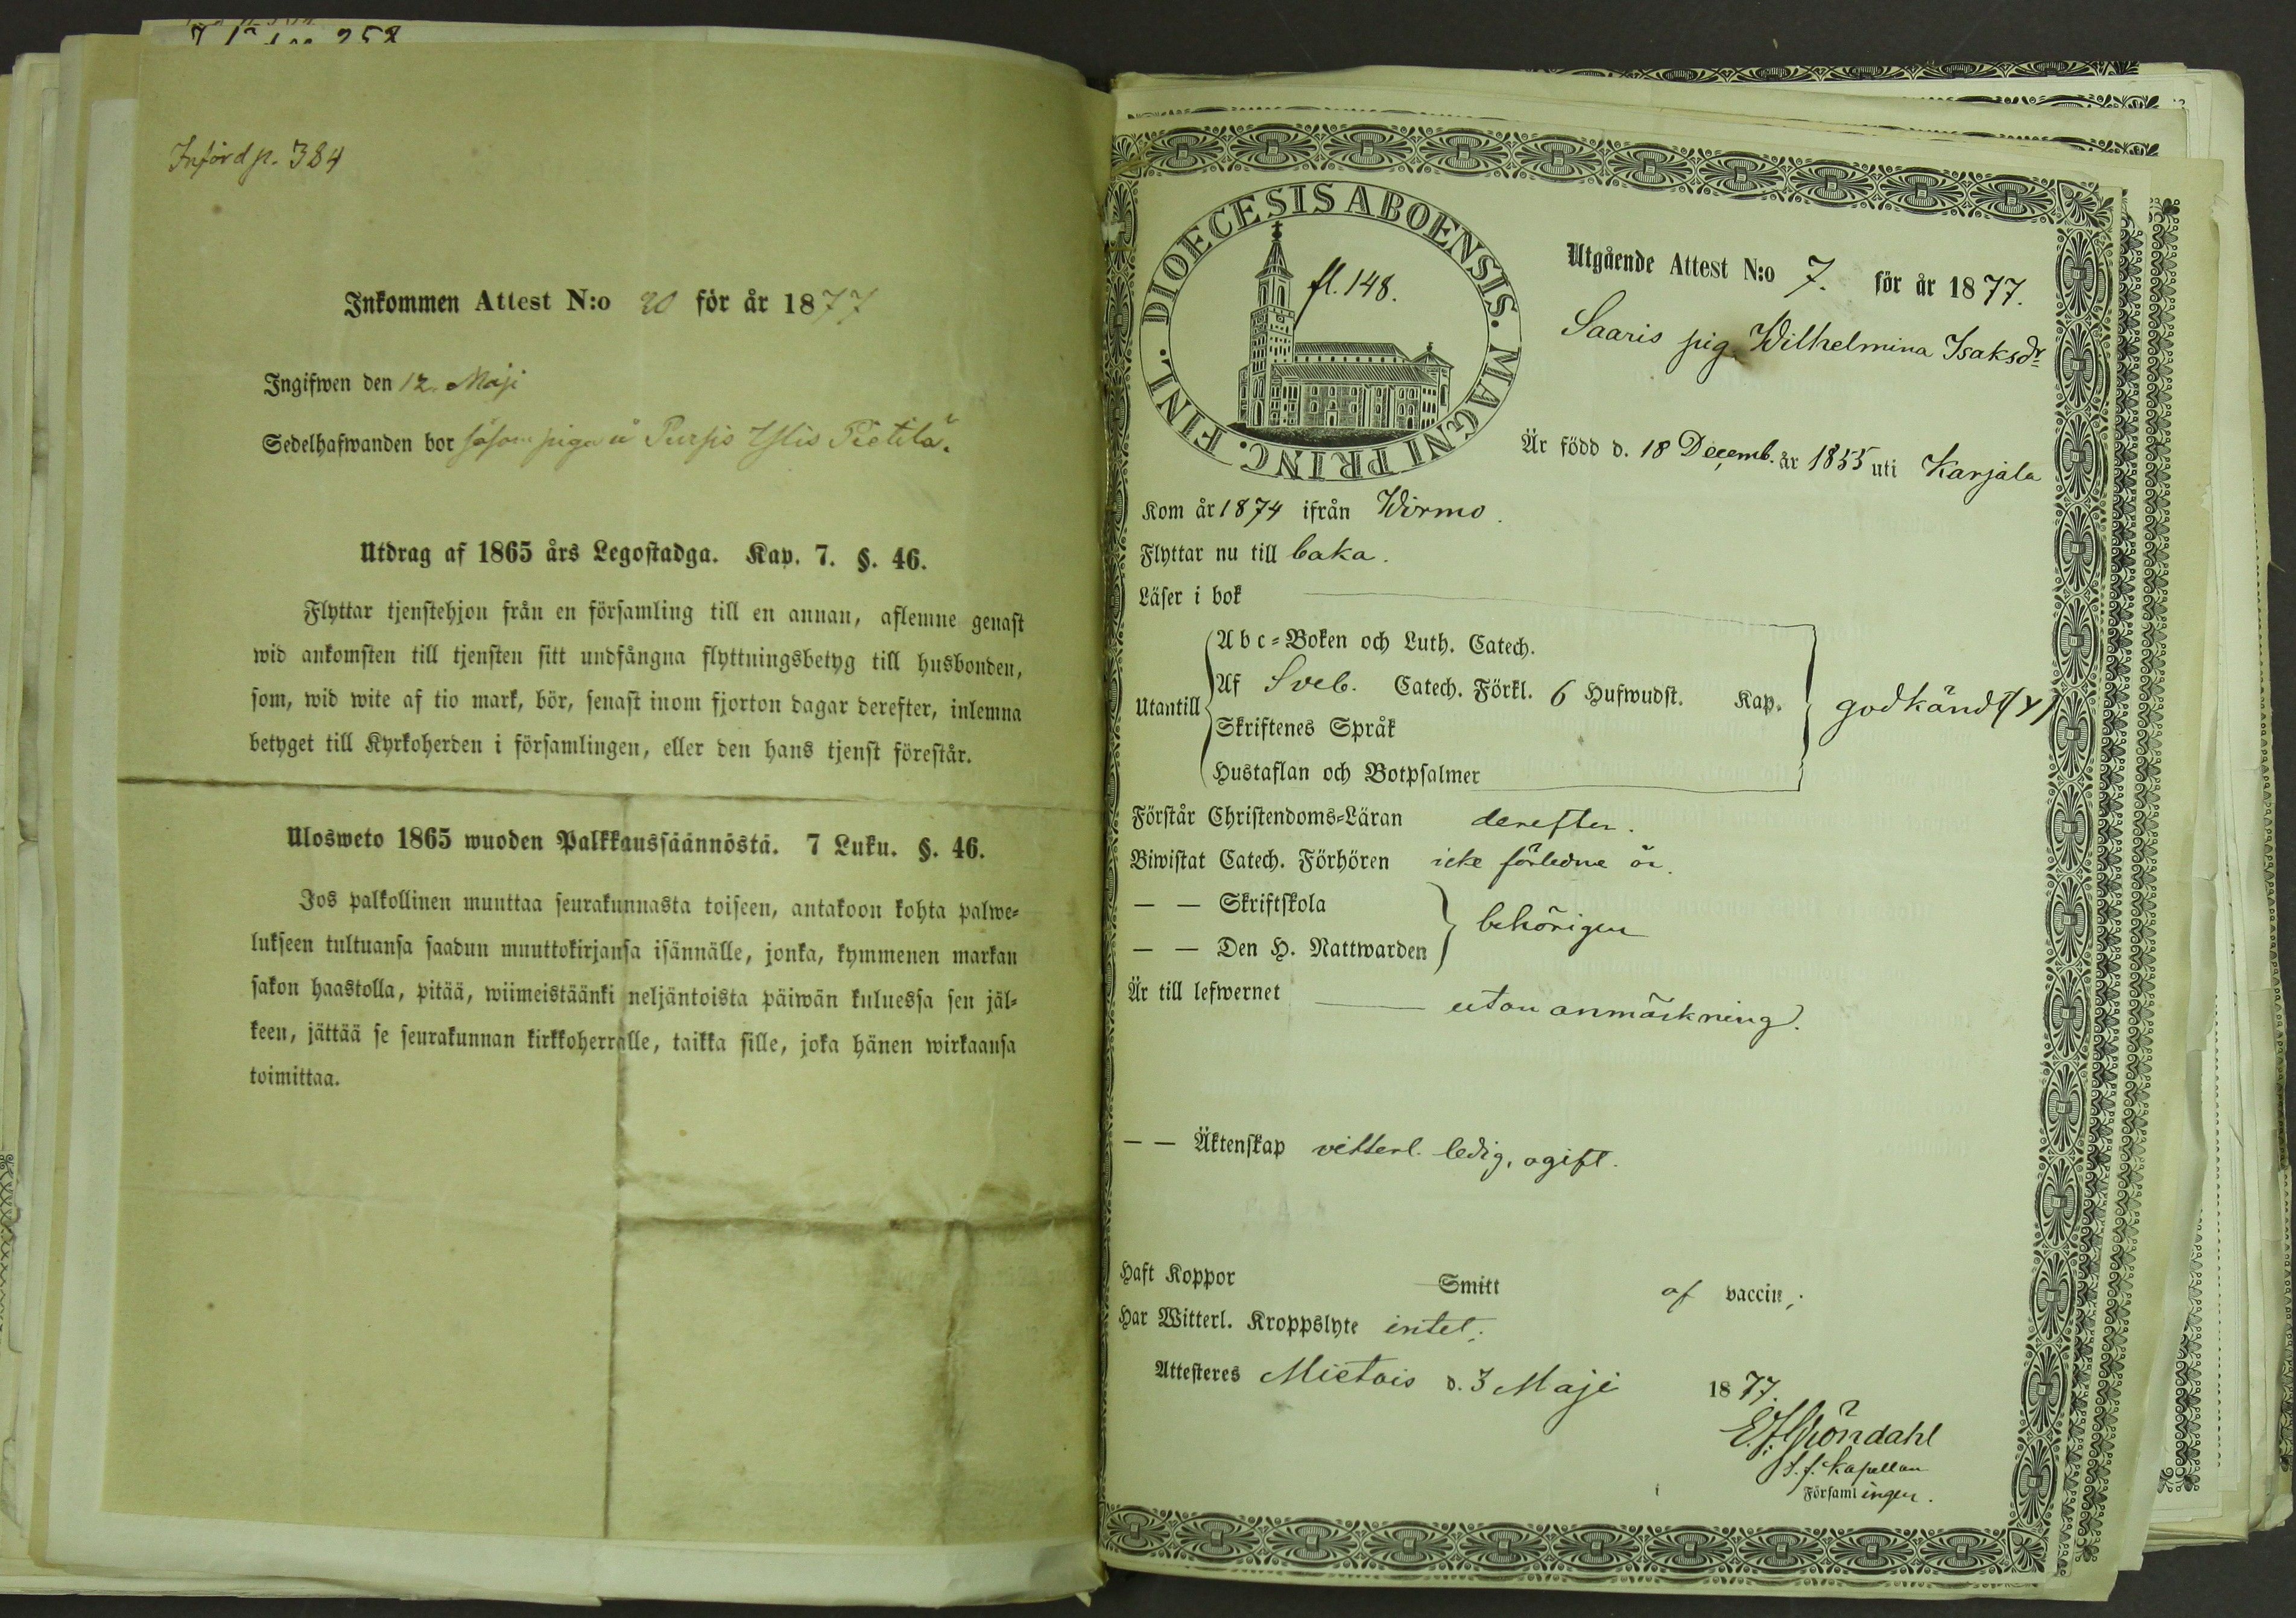 Införd p. 384
Inkommen Attest N:o 20 för år 1877
Ingifwen den 12. Maji
Sedelhafwanden bor såsom piga å Purpis Ylis Pietilä.
Utdrag af 1865 års Legostadga. Kap. 7. §. 46.
Flyttar tjenstehjon från en församling till en annan, aflemne genast
wid ankomsten till tjensten sitt undfångna flyttningsbetyg till husbonden,
som, wid wite af tio mark, bör, senast inom fjorton dagar derefter, inlemna
betyget till Kyrkoherden i församlingen, eller den hans tjenst förestår.
Ulosweto 1865 wuoden Palkkaussäännöstä. 7 Luku. §. 46.
Jos palkollinen muuttaa seurakunnasta toiseen, antakoon kohta palwe-
lukseen tultuansa saadun muuttokirjansa isännälle, jonka, kymmenen markan
sakon haastolla, pitää, wiimeistäänki neljäntoista päiwän kuluessa sen jäl-
keen, jättää se seurakunnan kirkkoherralle, taikka sille, joka hänen wirkaansa
toimittaa.
DIOECESIS ABOENSIS. MAGNI PRINC. FINL.
fl. 148.
Utgående Attest N:o 7. för år 1877.
Saaris pig. Wilhelmina Isaksdr
Är född d. 18 Decemb. år 1855 uti Karjala
Kom år 1874 ifrån Wirmo.
Flyttar nu till baka.
Läser i bok
Utantill
Abc-Boken och Luth. Catech.
Af Sveb. Catech. Förkl. 6 Hufwudst. Kap.
Skriftenes Språk
Hustaflan och Botpsalmer
godkändt
Förstår Christendoms-Läran derefter.
Biwistat Catech. Förhören icke förledne år.
— — Skriftskola
— — Den H. Nattwarden
behörigen
Är till lefwernet utan anmärkning.
— — Äktenskap vitterl. ledig, ogift.
Haft Koppor Smitt af vaccin;
Har Witterl. Kroppslyte intet;
Attesteres Mietois d. 3 Maji 1877.
t. f. Kapellan
i Församlingen.